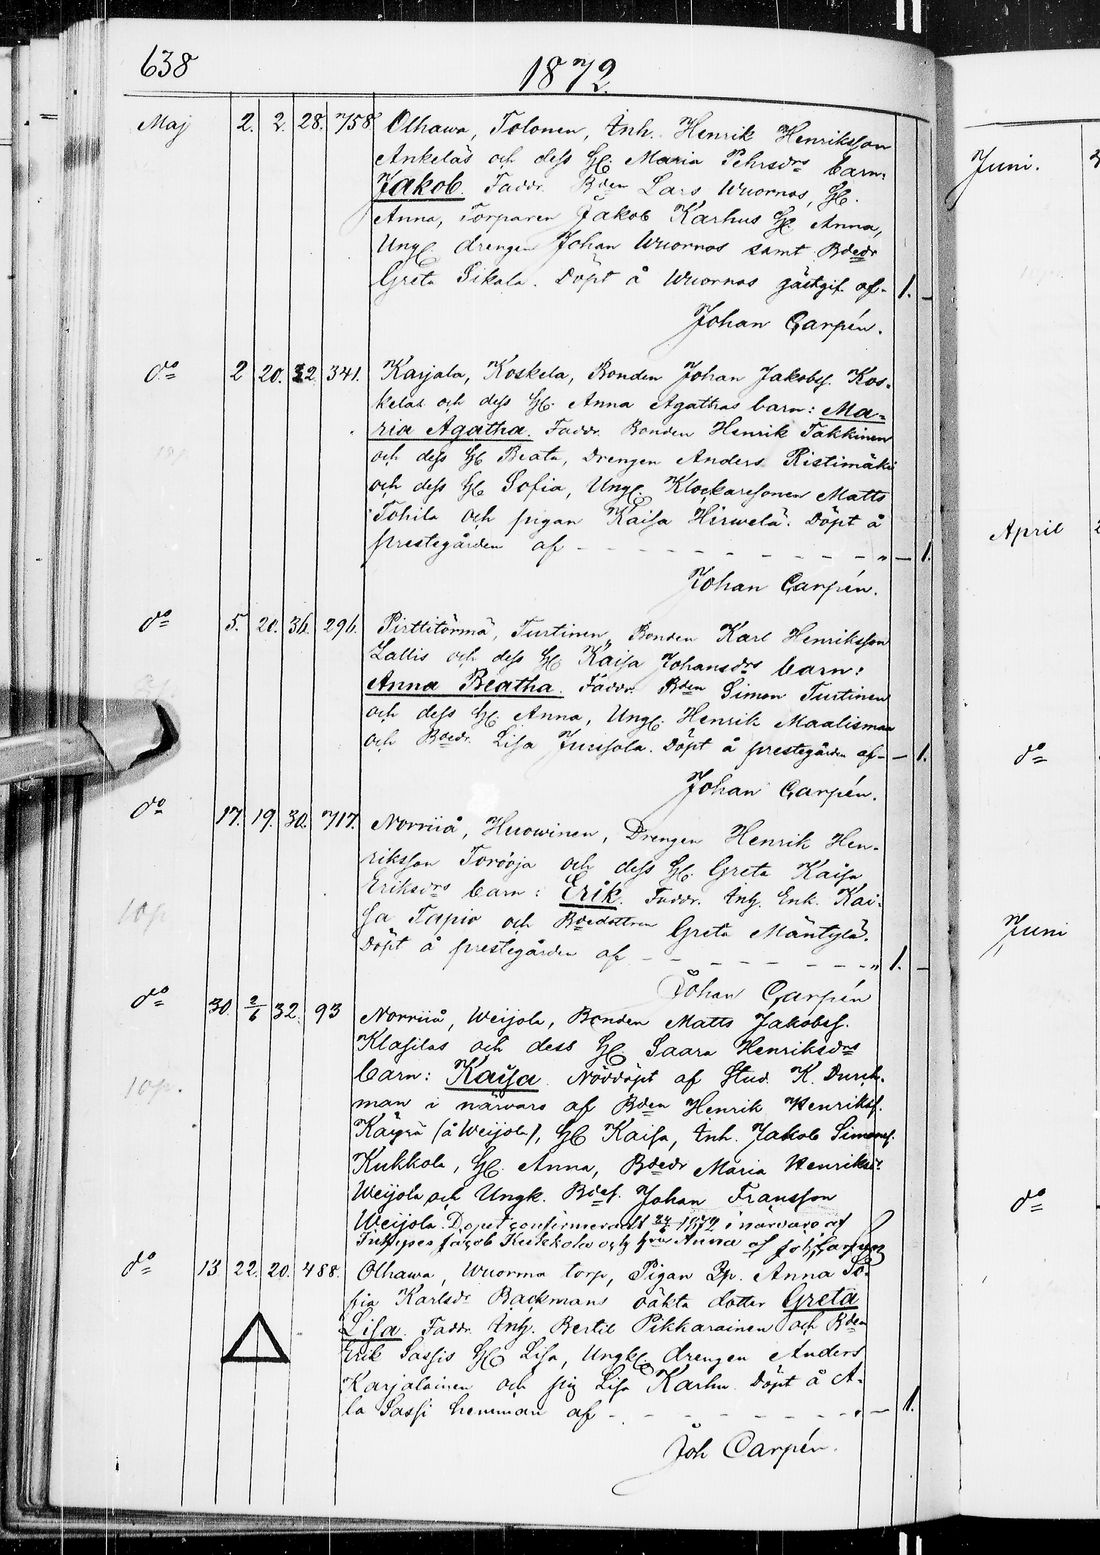 638
1872.
Maj 2. 2. 28. 758 Olhawa, Tolonen, Inh. Henrik Henriksson
Ankelās och dess H. Maria Pehrsdrs barn:
Jakob. Faddr. Bden Lars Wuornos, H.
Anna, Torparen Jakob Karhus H. Anna,
Ungk. drengen Johan Wuornos samt Bdedr
Greta Sikala. Döpt å Wuornos gästgif. af - 1. -
Johan Carpén.
do 2 20. 32. 341. Karjala, Koskela, Bonden Johan Jakobs. Kos-
kelas och dess H. Anna Agathas barn: Ma-
ria Agatha. Faddr. Bonden Henrik Takkinen
och dess H. Beata, Drengen Anders Ristimäki
och dess H. Sofia, Ungk. Klockaresonen Matts
Tohila och pigan Kaisa Hirwelä. Döpt å
prestegården af - - - - - - - - " - 1.
Johan Carpén.
do 5. 20. 36. 296. Pirttitörmä, Turtinen, Bonden Karl Henriksson
Lallis och dess H. Kaisa Johansdrs barn:
Anna Beatha. Faddr. Bden Simon Turtinen
och dess H. Anna, Ungk. Henrik Maalismaa
och Bdedr. Lisa Jurssola. Döpt å prestegården af - - 1.
Johan Carpén.
do 17. 19. 30. 717. Norriiå, Huowinen, Drengen Henrik Hen-
riksson Torvoja och dess H. Greta Kaisa
Eriksdrs barn: Erik. Faddr. Inh. Enk. Kai-
sa Tapio och Bdedottren Greta Mäntylä.
Döpt å prestegården af - - - - - - " 1. -
Johan Carpén
do 30. 2/6 32. 93 Norriiå, Weijola, Bonden Matts Jakobs.
Klasilas och dess H. Saara Henriksdrs
barn: Kaisa. Nöddöpt af Stud. K. Durch-
man i närvaro af Bden Henrik Henriks.
(å Weijola), H. Kaisa, Inh. Jakob Simons.
Kukkola, H. Anna, Bdedr Maria Henriksdr
Weijola och Ungk. Bdes. Johan Fransson
Weijola. Dopet confirmeradt 1872 i närvaro af
Jacob Kukkola och Anna af Joh. Carpén
do 13 22. 20. 488. Olhawa, Wuorma torp, Pigan Anna So-
fia Karlsdr Backmans oäkta dotter Greta
Lisa. Faddr. Inh. Bertil Pikkarainen och Bden
Erik Sassis H. Lisa, Ungk. drengen Anders
Karjalainen och pig Lisa Karhu. Döpt å A-
la Sassi hemman af - - - - - - - - 1.
Joh Carpén.
10p
10p.
Juni.
April
do
Juni
do